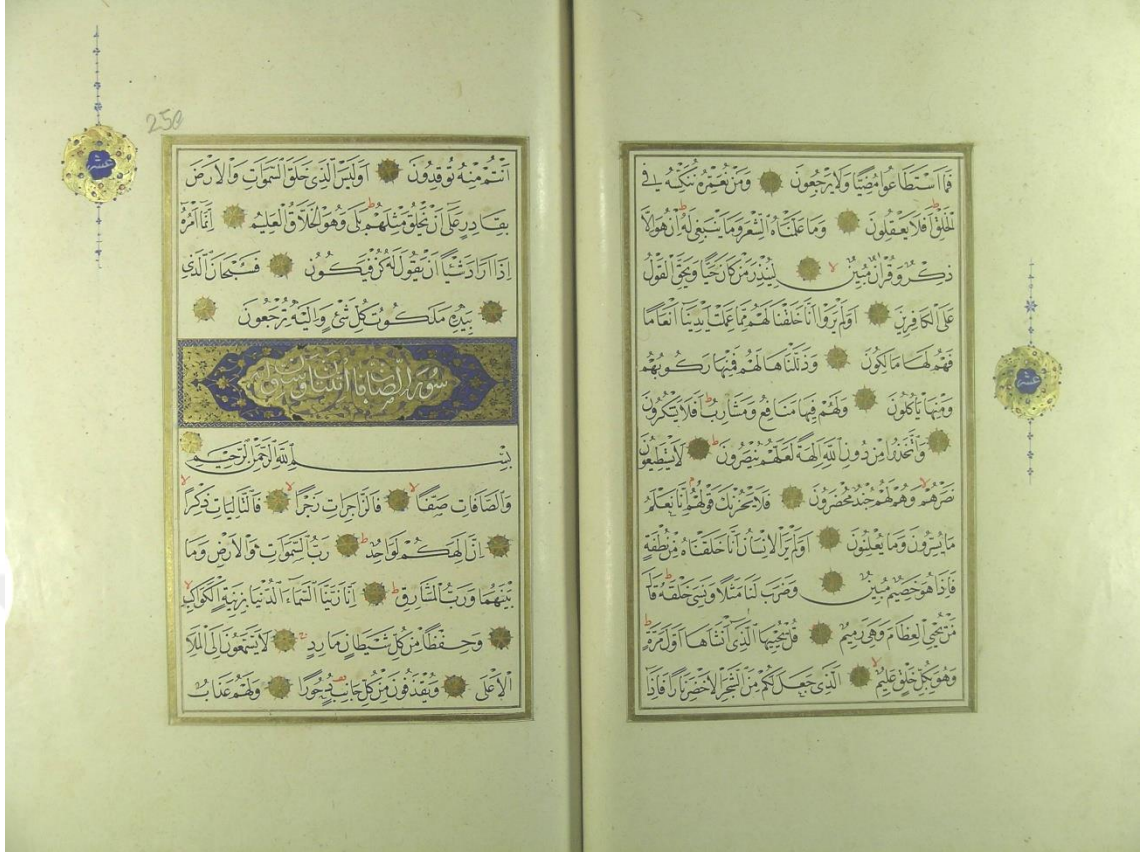 فَمَا اسْتَطَاعُوا مُضِيًّا وَلَا يَرْجِعُونَ وَمَنْ نُعَمِّرْهُ نُنَكِّسْهُ فِي
الْخَلْقِ اَفَلَا يَعْقِلُونَ وَمَا عَلَّمْنَاهُ الشِّعْرَ وَمَا يَنْبَغِي لَهُ اِنْ هُوَ اِلَّا
ذِكْرٌ وَقُرْاٰنٌ مُبِينٌ لِيُنْذِرَ مَنْ كَانَ حَيًّا وَيَحِقَّ الْقَوْلُ
عَلَى الْكَافِرِينَ اَوَلَمْ يَرَوْا اَنَّا خَلَقْنَا لَهُمْ مِمَّا عَمِلَتْ اَيْدِينَا اَنْعَامًا
فَهُمْ لَهَا مَالِكُونَ وَذَلَّلْنَاهَا لَهُمْ فَمِنْهَا رَكُوبُهُمْ
وَمِنْهَا يَأْكُلُونَ وَلَهُمْ فِيهَا مَنَافِعُ وَمَشَارِبُ اَفَلَا يَشْكُرُونَ
وَاتَّخَذُوا مِنْ دُونِ اللّٰهِ اٰلِهَةً لَعَلَّهُمْ يُنْصَرُونَ لَا يَسْتَطِيعُونَ
نَصْرَهُمْ وَهُمْ لَهُمْ جُنْدٌ مُحْضَرُونَ فَلَا يَحْزُنْكَ قَوْلُهُمْ اِنَّا نَعْلَمُ
مَا يُسِرُّونَ وَمَا يُعْلِنُونَ اَوَلَمْ يَرَ الْاِنْسَانُ اَنَّا خَلَقْنَاهُ مِنْ نُطْفَةٍ
فَاِذَا هُوَ خَصِيمٌ مُبِينٌ وَضَرَبَ لَنَا مَثَلًا وَنَسِيَ خَلْقَهُ قَالَ
مَنْ يُحْيِي الْعِظَامَ وَهِيَ رَمِيمٌ قُلْ يُحْيِيهَا الَّذِي اَنْشَاَهَا اَوَّلَ مَرَّةٍ
وَهُوَ بِكُلِّ خَلْقٍ عَلِيمٌ الَّذِي جَعَلَ لَكُمْ مِنَ الشَّجَرِ الْاَخْضَرِ نَارًا فَاِذَا
عشر
250
عشر
اَنْتُمْ مِنْهُ تُوقِدُونَ اَوَلَيْسَ الَّذِي خَلَقَ السَّمٰوَاتِ وَالْاَرْضَ
بِقَادِرٍ عَلٰى اَنْ يَخْلُقَ مِثْلَهُمْ بَلٰى وَهُوَ الْخَلَّاقُ الْعَلِيمُ اِنَّمَا اَمْرُهُ
اِذَا اَرَادَ شَيْئًا اَنْ يَقُولَ لَهُ كُنْ فَيَكُونُ فَسُبْحَانَ الَّذِي
بِيَدِهِ مَلَكُوتُ كُلِّ شَيْءٍ وَاِلَيْهِ تُرْجَعُونَ
سورة الصافات
بِسْمِ اللّٰهِ الرَّحْمٰنِ الرَّحِيمِ
وَالصَّافَّاتِ صَفًّا فَالزَّاجِرَاتِ زَجْرًا فَالتَّالِيَاتِ ذِكْرًا
اِنَّ اِلٰهَكُمْ لَوَاحِدٌ رَبُّ السَّمٰوَاتِ وَالْاَرْضِ وَمَا
بَيْنَهُمَا وَرَبُّ الْمَشَارِقِ اِنَّا زَيَّنَّا السَّمَاءَ الدُّنْيَا بِزِينَةٍ الْكَوَاكِبِ
وَحِفْظًا مِنْ كُلِّ شَيْطَانٍ مَارِدٍ لَا يَسَّمَّعُونَ اِلَى الْمَلَاِ
الْاَعْلٰى وَيُقْذَفُونَ مِنْ كُلِّ جَانِبٍ دُحُورًا وَلَهُمْ عَذَابٌ